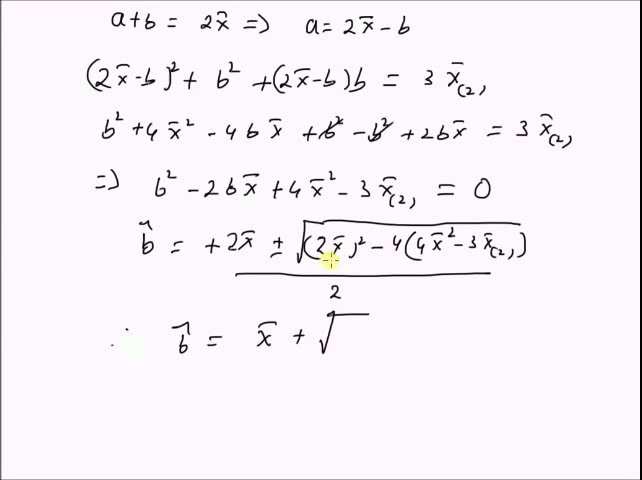 a+b = 2x̄ => a= 2x̄ - b
(2x̄-b)² + b² +(2x̄-b)b = 3 x̄₍₂₎
b² +4x̄² - 4bx̄ +b² - b² +2bx̄ = 3 x̄₍₂₎
=> b² - 2bx̄ +4x̄² - 3x̄₍₂₎ = 0
b̂ = +2x̄ ± √(2x̄)² - 4(4x̄² - 3x̄₍₂₎)
2
∴ b̂ = x̄ + √